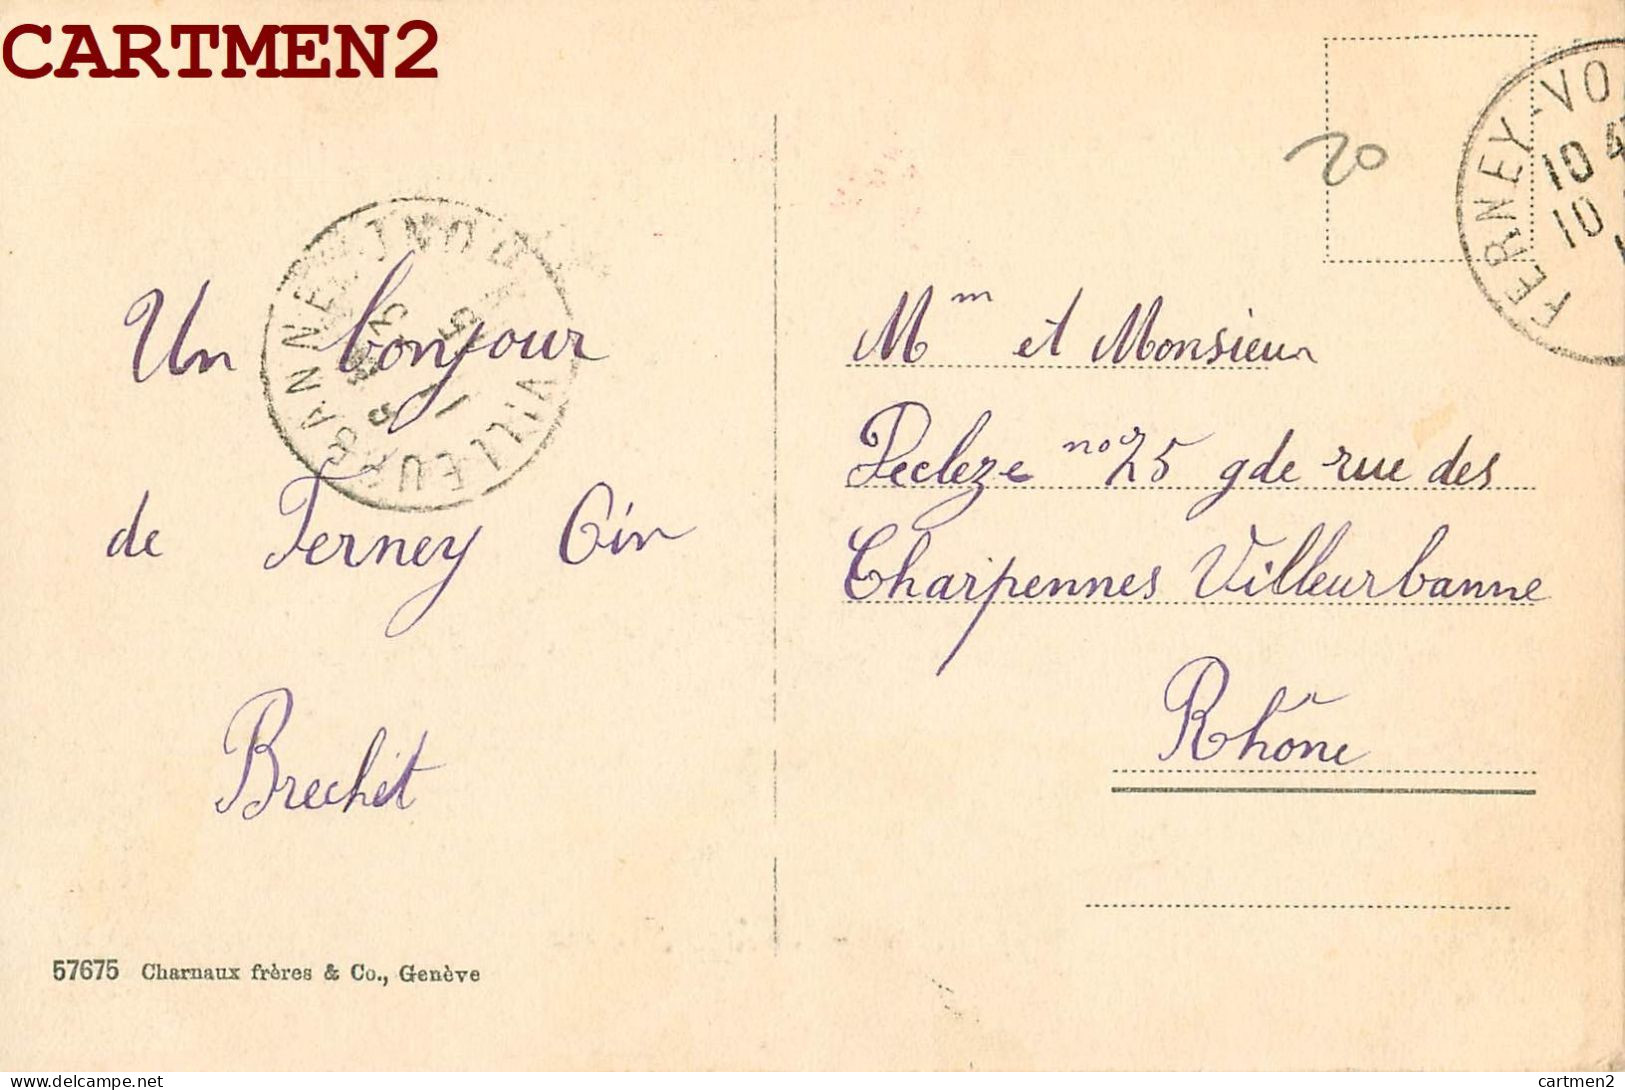 CARTMEN2
Un bonjour
de Ferney Gin
Brechet
57675 Charnaux frères & Co., Genève
20
FERNEY-VO
10
10
Mm et Monsieur
Pecleze no 25 gde rue des
Charpennes Villeurbanne
Rhône
VILLEURBANNE
cartmen2
cartmen2